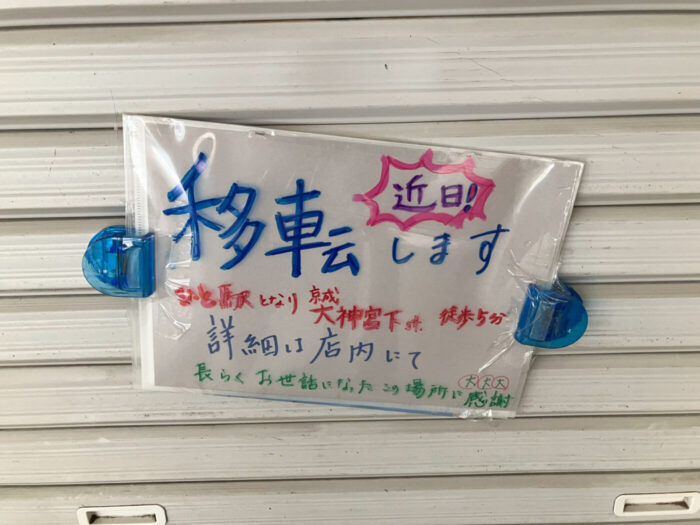 近日!
移転します
ひと駅となり 京成
大神宮下 徒歩5分
詳細は店内にて
長らくお世話になったこの場所に 大大大
感謝